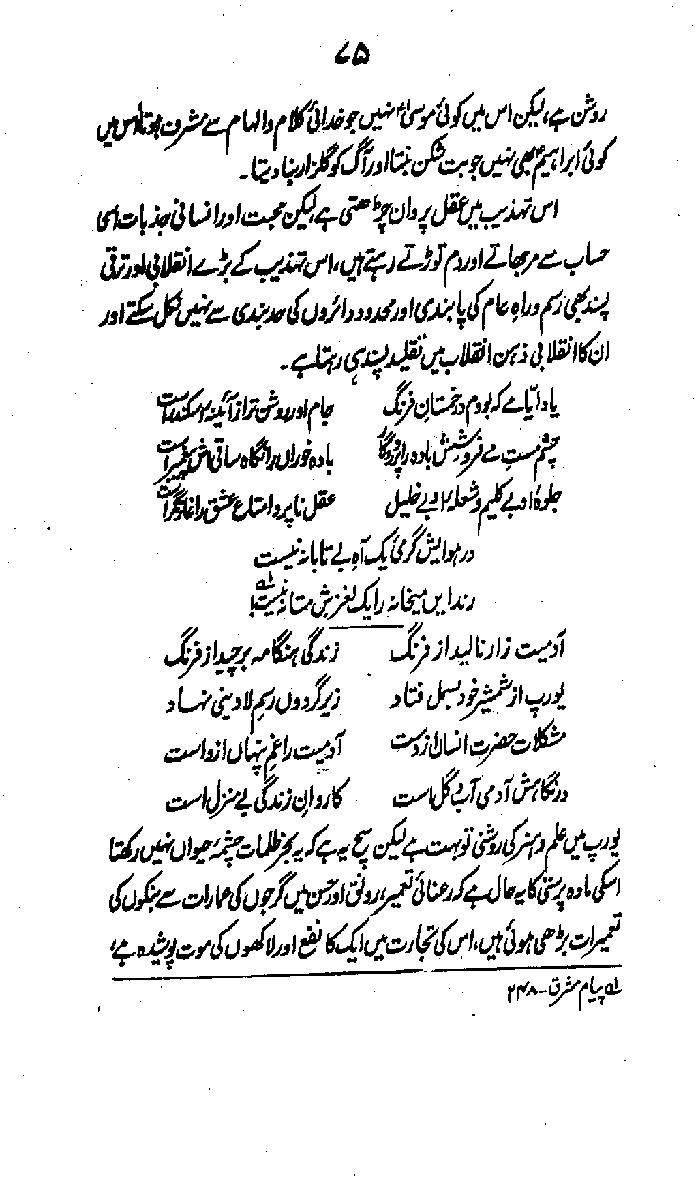 ۷۵
روشن ہے، لیکن اس میں کوئی موسیٰ نہیں جو خدائی کلام والہام سے مشرف ہوتا، اس میں
کوئی ابراہیم بھی نہیں جو بت شکن بنتا اور آگ کو گلزار بنا دیتا۔
اس تہذیب میں عقل پروان چڑھتی ہے، لیکن محبت اور انسانی جذبات اسی
حساب سے مرجھاتے اور دم توڑتے رہتے ہیں، اس تہذیب کے بڑے انقلابی اور ترقی
پسند بھی رسم و راہِ عام کی پابندی اور محدود دائروں کی حد بندی سے نہیں نکل سکتے اور
ان کا انقلابی ذہن انقلاب میں تقلید پسند ہی رہتا ہے۔
یاد ایّامے کہ بودم در خمستانِ فرنگ جام او روشن تر از آئینۂ اسکندر است
چشم مست مے فروشش بادہ را پروردگار بادہ خوراں را نگاہ ساقی اش پیغمبر است
جلوۂ او بے کلیم و شعلۂ او بے خلیل عقل ناپروا متاع عشق را غارتگر است
در ہوایش گرمیٔ یک آہ بے تابانہ نیست
رند ایں میخانہ را یک لغزش مستانہ نیست! لہ
آدمیت زار نالید از فرنگ زندگی ہنگامہ برچید از فرنگ
یورپ از شمشیر خود بسمل فتاد زیر گردوں رسم لادینی نہاد
مشکلات حضرت انساں ازوست آدمیت را غم پنہاں ازو است
در نگاہش آدمی آب و گل است کاروانِ زندگی بے منزل است
یورپ میں علم و ہنر کی روشنی تو بہت ہے لیکن سچ یہ ہے کہ یہ بحر ظلمات چشمۂ حیواں نہیں رکھتا
اسکی مادہ پرستی کا یہ حال ہے کہ رعنائی تعمیر، رونق اور حسن میں گرجوں کی عمارات سے بنکوں کی
تعمیرات بڑھی ہوئی ہیں، اس کی تجارت میں ایک کا نفع اور لاکھوں کی موت پوشیدہ ہے،
لہ پیام مشرق۔ ۲۴۸